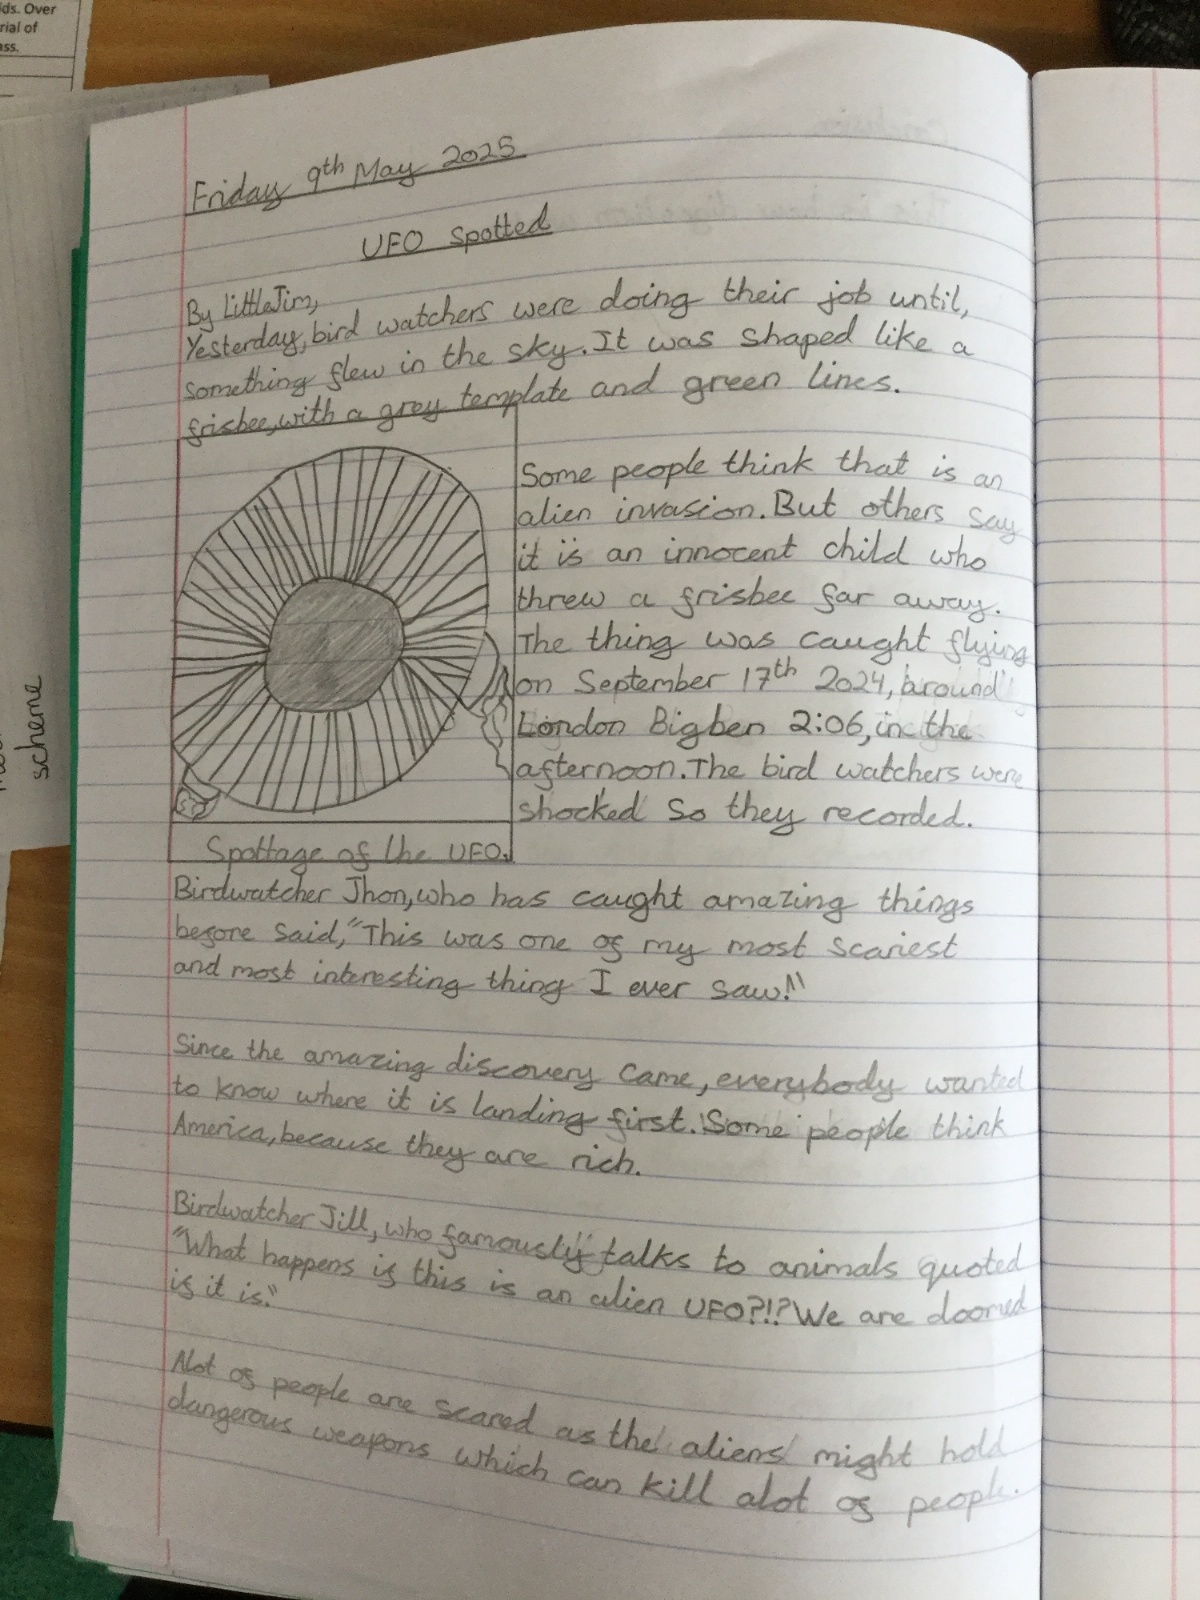 ids. Over
rial of
ass.
scheme
Friday 9th May 2025
UFO Spotted
By LittleJim,
Yesterday, bird watchers were doing their job until,
something flew in the sky. It was shaped like a
frisbee, with a grey template and green lines.
Some people think that is an
alien invasion. But others say
it is an innocent child who
threw a frisbee far away.
The thing was caught flying
on September 17th 2024, around
London Bigben 2:06, in the
afternoon. The bird watchers were
shocked so they recorded.
Spottage of the UFO.
Birdwatcher Jhon, who has caught amazing things
before said, "This was one of my most scariest
and most interesting thing I ever saw!"
Since the amazing discovery came, everybody wanted
to know where it is landing first. Some people think
America, because they are rich.
Birdwatcher Jill, who famously talks to animals quoted
"What happens if this is an alien UFO?!? We are doomed
if it is."
Alot of people are scared as the aliens might hold
dangerous weapons which can kill alot of people.